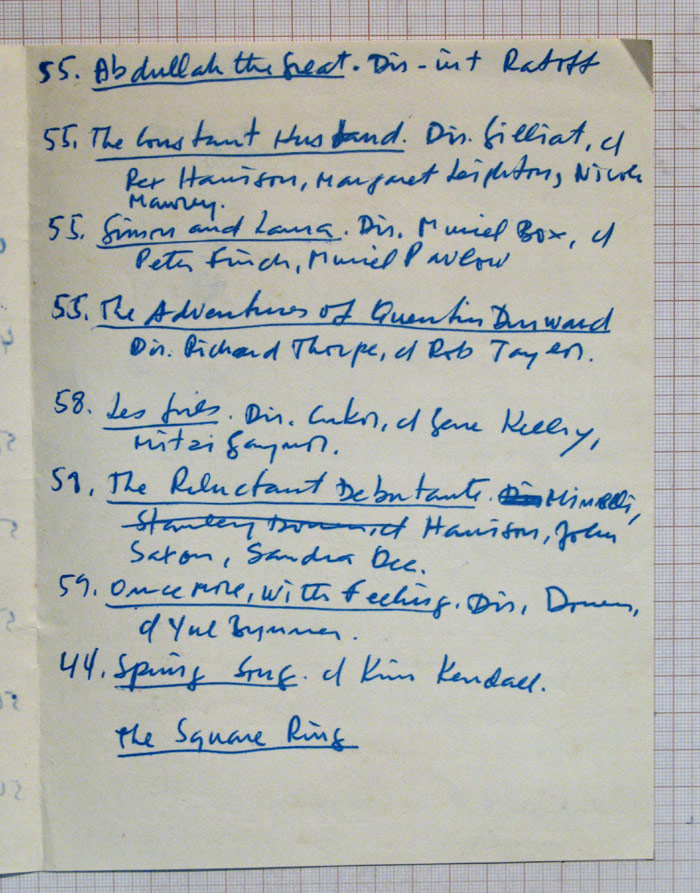 55. Abdullah the Great. Dir-int Ratoff
55. The Constant Husband. Dir. Gilliat, cf
Rex Harrison, Margaret Leighton, Nicole
Maurey.
55. Simon and Laura. Dir. Muriel Box, cf
Peter Finch, Muriel Pavlow
55. The Adventures of Quentin Durward
Dir. Richard Thorpe, cf Rob Taylor.
58. Les Girls. Dir. Cukor, cf Gene Kelly,
Mitzi Gaynor.
58. The Reluctant Debutante. Dir Minnelli,
Stanley Donen, cf Harrison, John
Saxon, Sandra Dee.
59. Once More, With Feeling. Dir. Donen,
cf Yul Brynner.
44. Spring Song. cf Kim Kendall.
The Square Ring